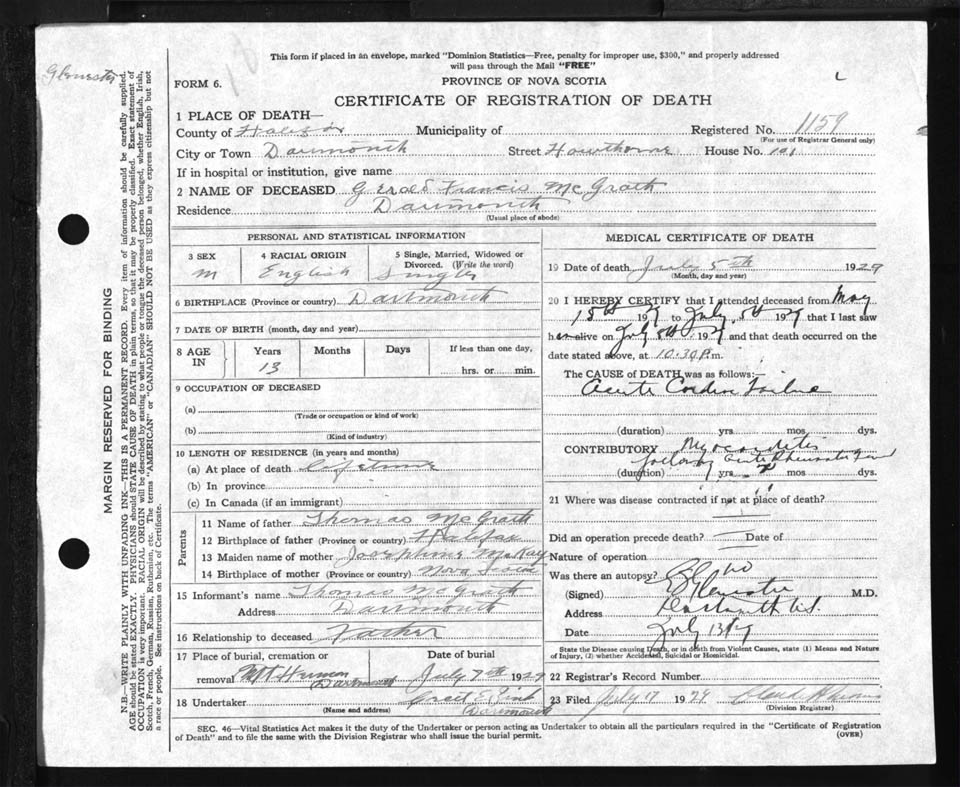 This form if placed in an envelope, marked "Dominion Statistics—Free, penalty for improper use, $300," and properly addressed
will pass through the Mail "FREE"
FORM 6.
PROVINCE OF NOVA SCOTIA
CERTIFICATE OF REGISTRATION OF DEATH
1 PLACE OF DEATH—
County of Halifax Municipality of Registered No. 1159
(For use of Registrar General only)
City or Town Dartmouth Street Hawthorne House No. 101
If in hospital or institution, give name
2 NAME OF DECEASED Gerald Francis McGrath
Residence Dartmouth
(Usual place of abode)
PERSONAL AND STATISTICAL INFORMATION
3 SEX 4 RACIAL ORIGIN 5 Single, Married, Widowed or
Divorced. (Write the word)
M English Single
6 BIRTHPLACE (Province or country) Dartmouth
7 DATE OF BIRTH (month, day and year)
8 AGE IN Years Months Days If less than one day,
13 hrs. or min.
9 OCCUPATION OF DECEASED
(a)
(Trade or occupation or kind of work)
(b)
(Kind of industry)
10 LENGTH OF RESIDENCE (in years and months)
(a) At place of death lifetime
(b) In province
(c) In Canada (if an immigrant)
Parents
11 Name of father Thomas McGrath
12 Birthplace of father (Province or country) Halifax
13 Maiden name of mother Josephine McKay
14 Birthplace of mother (Province or country) Nova Scotia
15 Informant's name Thomas McGrath
Address Dartmouth
16 Relationship to deceased Father
17 Place of burial, cremation or Date of burial
removal Mt Hermon July 7th 1929
Dartmouth
18 Undertaker
(Name and address) Dartmouth
MEDICAL CERTIFICATE OF DEATH
19 Date of death July 5th 1929
(Month, day and year)
20 I HEREBY CERTIFY that I attended deceased from May
15th 1929 to July 5th 1929 that I last saw
h alive on July 5th 1929 and that death occurred on the
date stated above, at 10.30 P.m.
The CAUSE of DEATH was as follows:—
Acute Cardiac Failure
(duration) yrs. mos. dys.
CONTRIBUTORY Myocarditis
following acute Rheumatic Fever
(duration) yrs. mos. dys.
21 Where was disease contracted if not at place of death?
Did an operation precede death? Date of
Nature of operation
Was there an autopsy? no
(Signed) M.D.
Address Dartmouth N.S.
Date July 13/29
State the Disease causing Death, or in death from Violent Causes, state (1) Means and Nature
of Injury, (2) whether Accidental, Suicidal or Homicidal.
22 Registrar's Record Number
23 Filed July 17 1929
(Division Registrar)
SEC. 46—Vital Statistics Act makes it the duty of the Undertaker or person acting as Undertaker to obtain all the particulars required in the "Certificate of Registration
of Death" and to file the same with the Division Registrar who shall issue the burial permit.
(OVER)
MARGIN RESERVED FOR BINDING
N.B.—WRITE PLAINLY WITH UNFADING INK—THIS IS A PERMANENT RECORD. Every item of information should be carefully supplied.
AGE should be stated EXACTLY. PHYSICIANS should STATE CAUSE OF DEATH in plain terms, so that it may be properly classified. Exact statement of
OCCUPATION is very important. RACIAL ORIGIN will be described by stating to what people or tongue the deceased person belonged, whether English, Irish,
Scotch, French, German, Russian, Ruthenian, etc. The terms "AMERICAN" or "CANADIAN" SHOULD NOT BE USED as they express citizenship but not
a race or people. See instructions on back of Certificate.